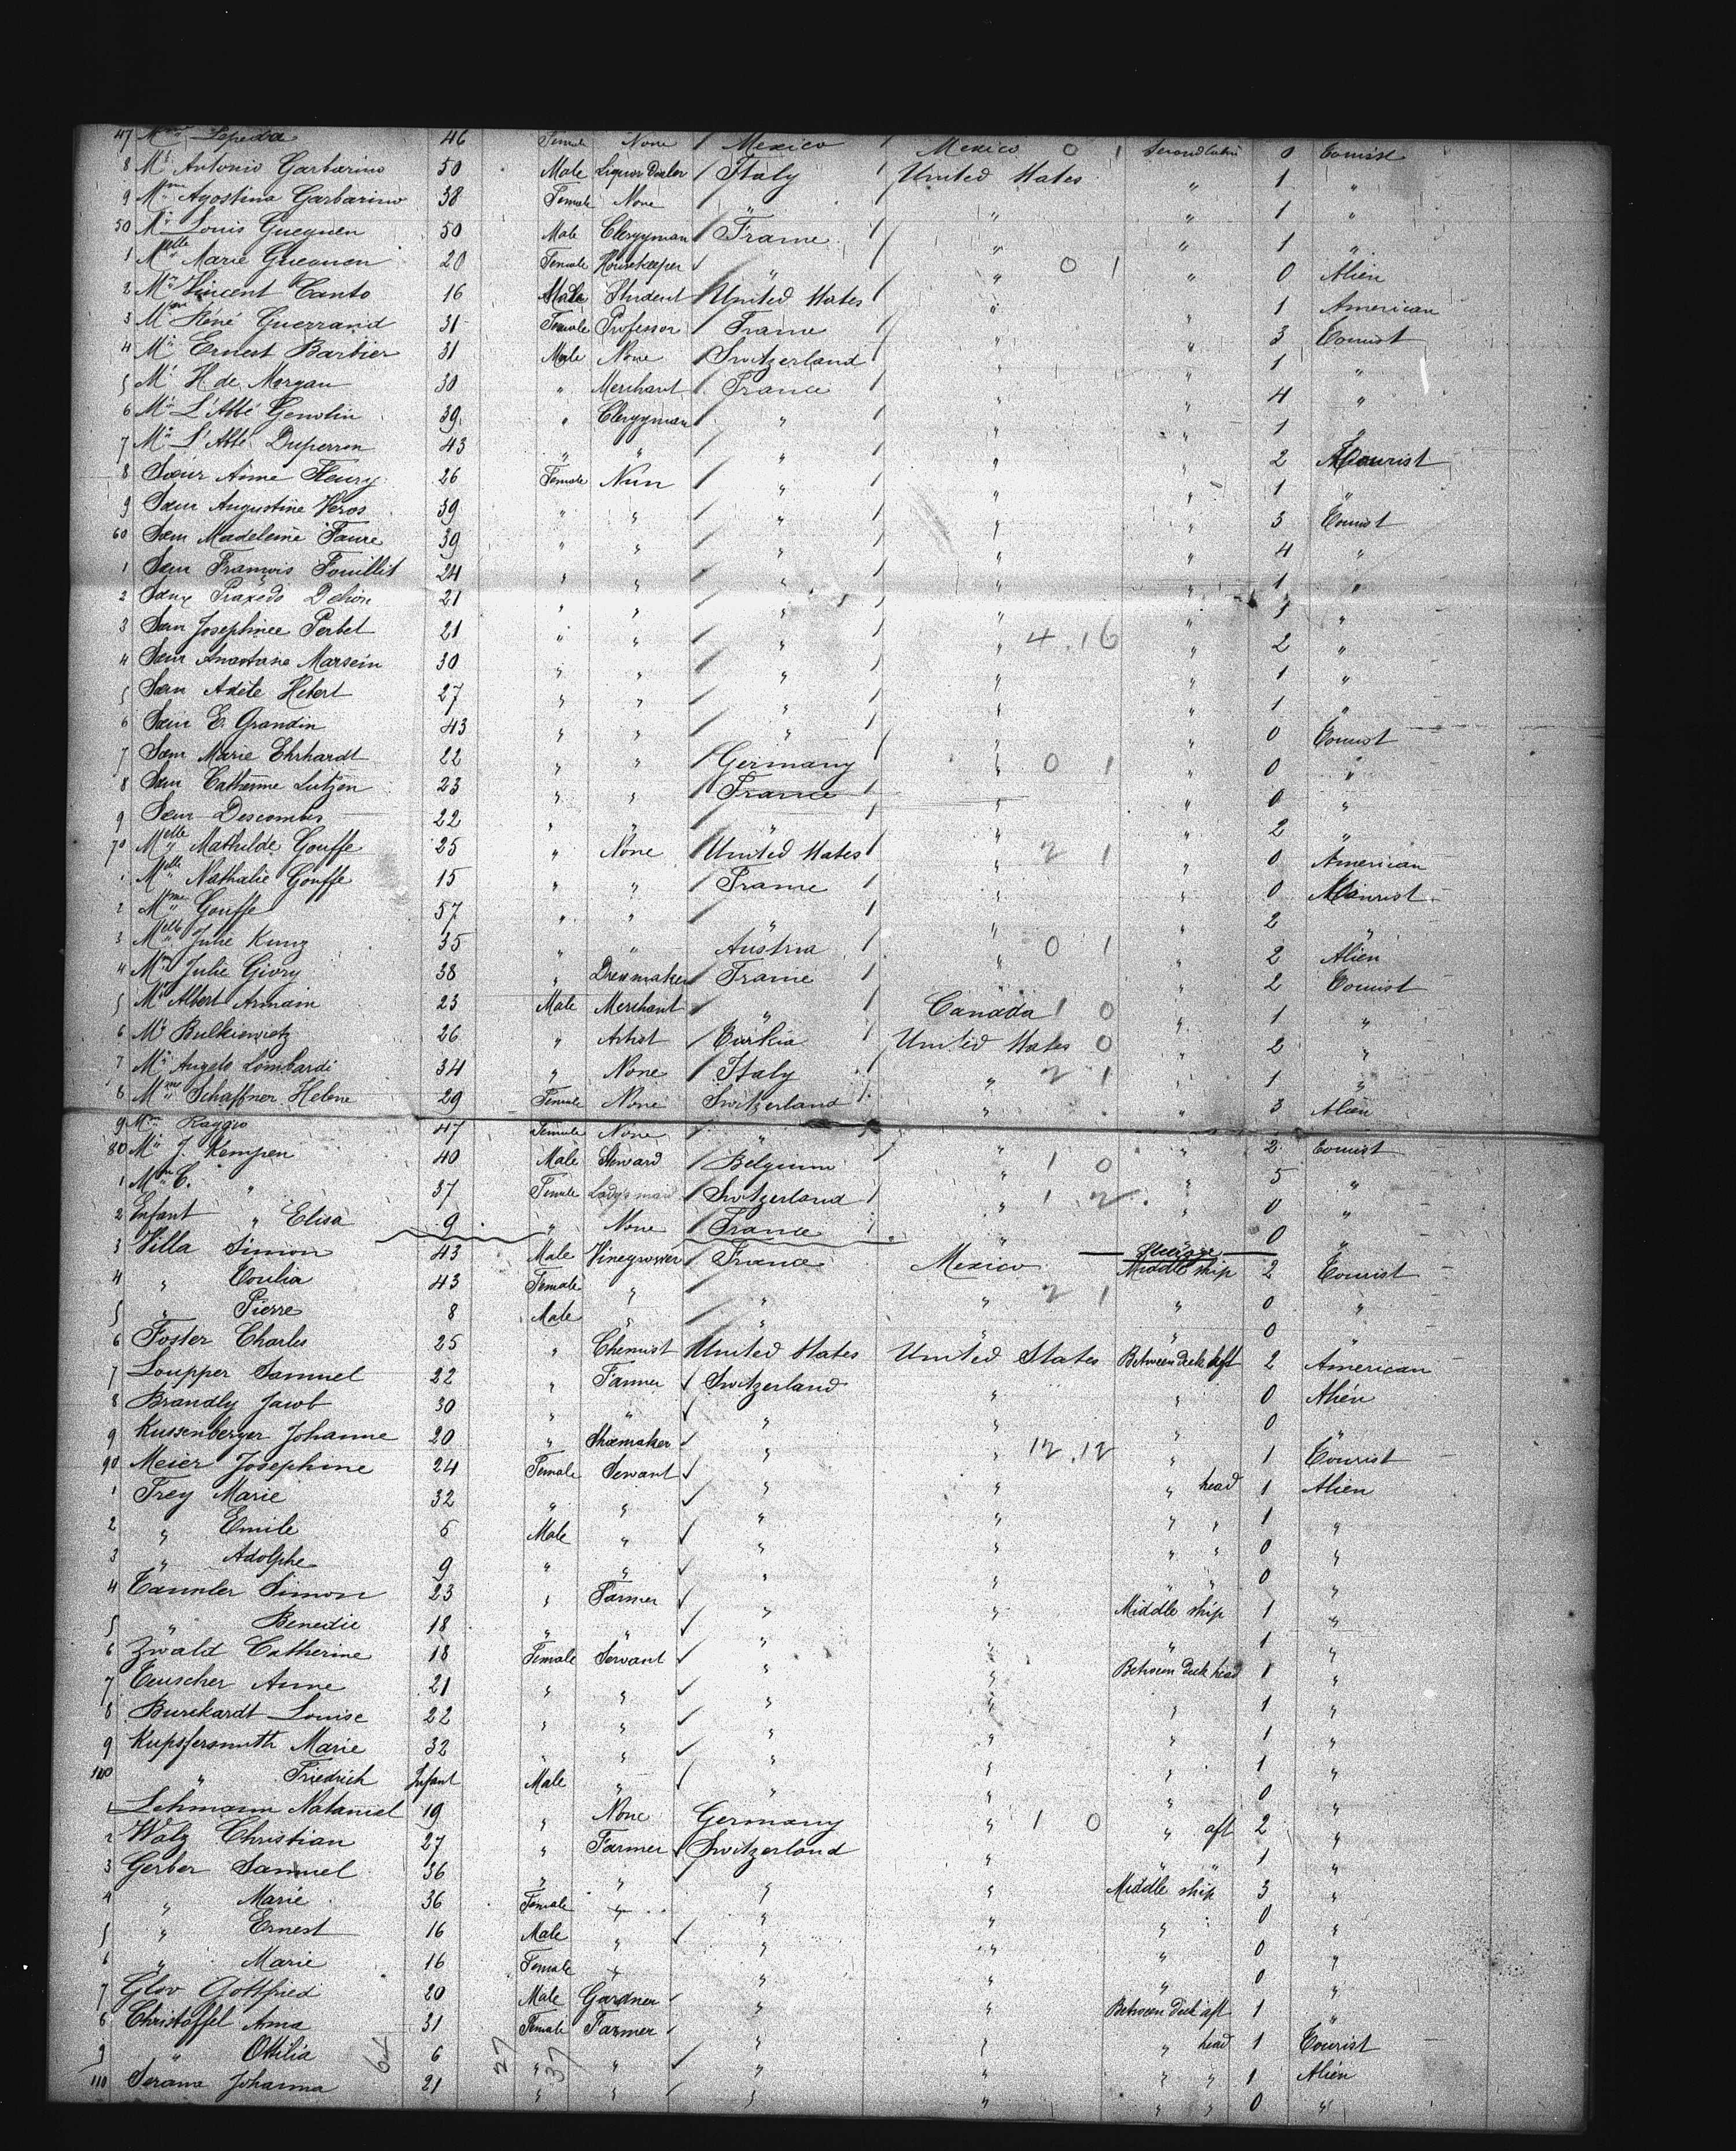 47 Mme Lepedra 46 Female None Mexico Mexico 0 1 Second Cabin 0 Tourist
8 Mr Antonio Garbarino 50 Male Liquor Dealer Italy United States " 1 "
9 Mme Agostina Garbarino 38 Female None " " " 1 "
50 Mr Louis Gueguen 50 Male Clergyman France " " 1 "
1 Melle Marie Gueguen 20 Female Housekeeper " " 0 1 " 0 Alien
2 Mr Vincent Canto 16 Male Student United States " " 1 American
3 Mme Réné Guerrand 31 Female Professor France " " 3 Tourist
4 Mr Ernest Barbier 31 Male None Switzerland " " 1 "
5 Mr H de Morgan 30 " Merchant France " " 4 "
6 Mr L'Abbé Genolin 39 " Clergyman " " " 1 "
7 Mr L'Abbé Duperron 43 " " " " " 2 Tourist
8 Soeur Anne Fleury 26 Female Nun " " " 1 "
9 Soeur Augustine Veros 39 " " " " " 3 Tourist
60 Soeur Madeleine Faure 39 " " " " " 4 "
1 Soeur François Fouillit 24 " " " " " 1 "
2 Soeur Praxedo Delion 21 " " " " " 1 "
3 Soeur Josephinee Perbet 21 " " " " 4 . 16 " 2 "
4 Soeur Anastasie Marsein 30 " " " " " 1 "
5 Soeur Adèle Hebert 27 " " " " " 1 "
6 Soeur E. Grandin 43 " " " " " 0 Tourist
7 Soeur Marie Ehrhardt 22 " " Germany " 0 1 " 0 "
8 Soeur Catherine Lutzen 23 " " France " 0 "
9 Soeur Descombes 22 " " " " " 2 "
70 Melle Mathilde Gouffe 25 " None United States " 2 1 " 0 American
1 Melle Nathalie Gouffe 15 " " France " " 0 Tourist
2 Mme Gouffe 57 " " " " " 2 "
3 Melle Julie Kunz 35 " " Austria " 0 1 " 2 Alien
4 Mme Julie Givry 38 " Dressmaker France " " 2 Tourist
5 Mr Albert Armain 23 Male Merchant " Canada 1 0 " 1 "
6 Mr Bulkiewietz 26 " Artist Turkia United States 0 " 2 "
7 Mr Angelo Lombardi 34 " None Italy " 2 1 " 1 "
8 Mme Schaffner Helene 29 Female None Switzerland " " 3 Alien
9 Mme Raggio 47 Female None " " " 2 Tourist
80 Mr J. Kempen 40 Male Steward Belgium " 1 0 " 5 "
1 Mme C. " 37 Female Lady's maid Switzerland " 1 2 " 0 "
2 Enfant " Elisa 9 " None France " " 0 "
Steerage
3 Villa Simon 43 Male Vinegrower France Mexico Middle ship 2 Tourist
4 " Emilia 43 Female " " " 2 1 " 0 "
5 " Pierre 8 Male " " " " 0 "
6 Foster Charles 25 " Chemist United States United States Between Deck aft 2 American
7 Loupper Samuel 22 " Farmer Switzerland " " 0 Alien
8 Brandly Jacob 30 " " " " " 0 "
9 Kussenberger Johanne 20 " Shoemaker " " 12 . 12 " 1 Tourist
90 Meier Josephine 24 Female Servant " " " head 1 Alien
1 Frey Marie 32 " " " " " " 1 "
2 " Emile 5 Male " " " " " 0 "
3 " Adolphe 9 " " " " " " 0 "
4 Tannler Simon 23 " Farmer " " Middle ship 1 "
5 " Benedic 18 " " " " " 1 "
6 Zwald Catherine 18 Female Servant " " Between Deck head 1 "
7 Teuscher Anne 21 " " " " " 1 "
8 Burckardt Louise 22 " " " " " 1 "
9 Kupsfersmuth Marie 32 " " " " " 1 "
100 " Friedrich Infant Male " " " " 0 "
1 Lehmann Nataniel 19 " None Germany " 1 0 " aft 2 "
2 Walz Christian 27 " Farmer Switzerland " " " 1 "
3 Gerber Samuel 36 " " " " Middle ship 3 "
4 " Marie 36 Female " " " " 0 "
5 " Ernest 16 Male " " " " 0 "
6 " Marie 16 Female " " " " 0 "
7 Glov Gottfried 20 Male Gardner " " Between Deck aft 1 "
8 Christoffel Anna 31 Female Farmer " " " head 1 Tourist
9 " Ottilia 6 " " " " " " 1 Alien
110 Serama Johanna 21 " " " " " " 0 "
64 27 37